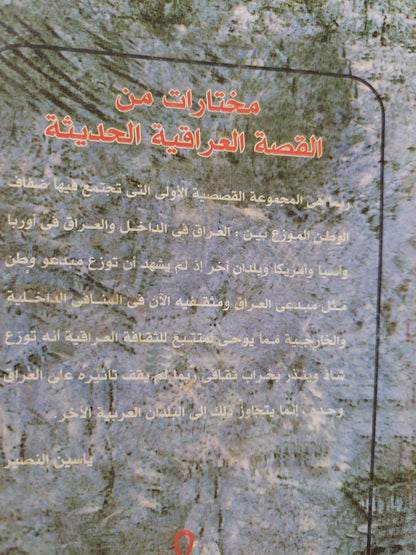 مختارات من
القصة العراقية الحديثة
ربما هى المجموعة القصصية الأولى التى تجتمع فيها ضفاف
الوطن الموزع بين : العراق فى الداخل والعراق فى أوربا
وآسيا وأمريكا وبلدان أخر إذ لم يشهد أن توزع مبدعو وطن
مثل مبدعى العراق ومثقفيه الآن فى المنافى الداخلية
والخارجية مما يوحى لمتتبع للثقافة العراقية أنه توزع
شاذ وينذر بخراب ثقافى ربما لم يقف تأثيره على العراق
وحده ، إنما يتجاوز ذلك إلى البلدان العربية الأخر .
ياسين النصير